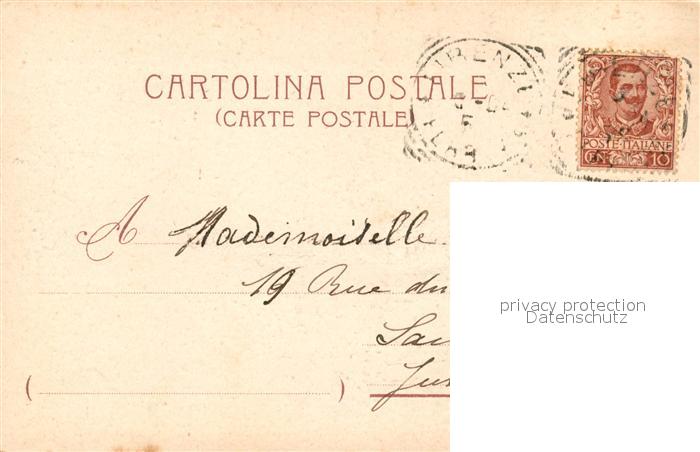 CARTOLINA POSTALE
(CARTE POSTALE)
FIRENZE
POSTE·ITALIANE
CEN. 10
A Mademoiselle
privacy protection
Datenschutz
19 Rue du
( )